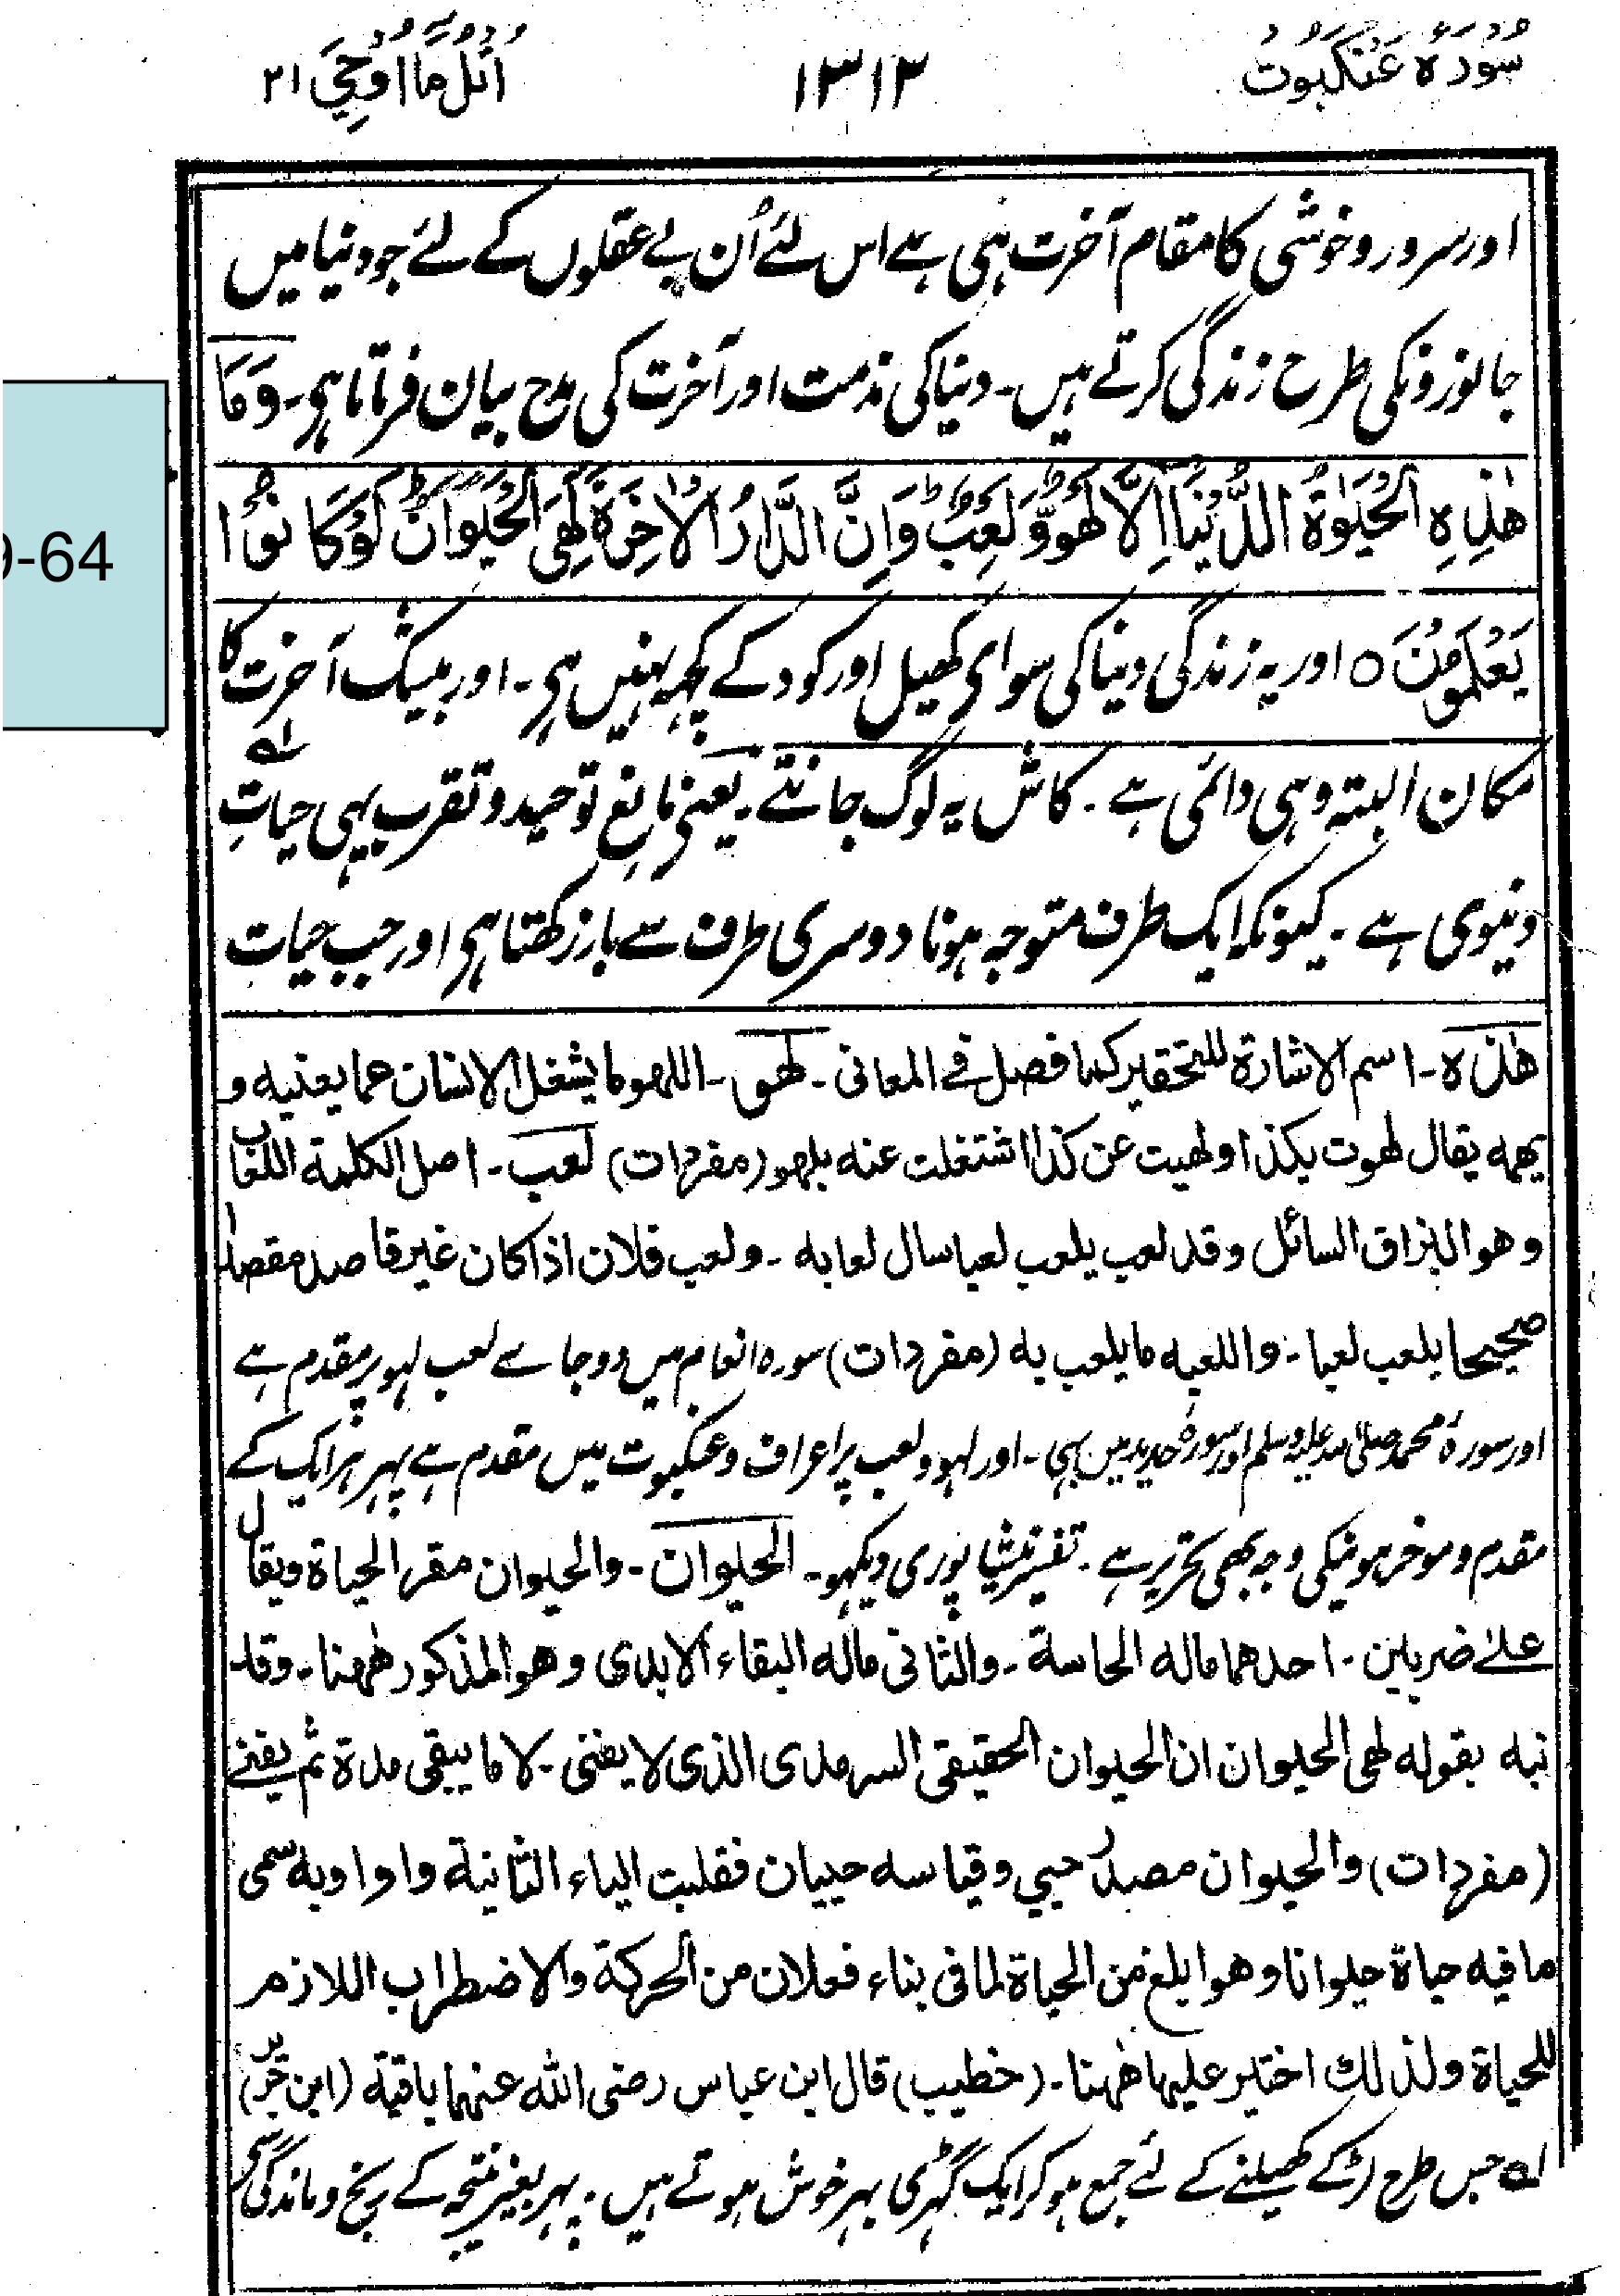 سُوْرَةُ عَنْكَبُوْت ۱۳۱۲ اُتْلُ مَا اُوْحِيَ ۲۱
اور سرور و خوشی کا مقام آخرت ہی ہے اس لئے اُن بے عقلوں کے لئے جو دنیا میں
جانورونکی طرح زندگی کرتے ہیں۔ دنیا کی مذمت اور آخرت کی مدح بیان فرماتا ہی۔ وَمَا
هٰذِهِ الْحَيٰوةُ الدُّنْيَا اِلَّا لَهْوٌ وَّلَعِبٌ ؕ وَاِنَّ الدَّارَ الْاٰخِرَةَ لَهِيَ الْحَيَوَانُ ؕ لَوْ كَانُوْا
9-64
يَعْلَمُوْنَ ○ اور یہ زندگی دنیا کی سوای کھیل اور کود کے کچھہ نہیں ہی۔ اور بیشک آخرت کا
مکان البتہ وہی دائمی ہے۔ کاش یہ لوگ جانتے۔ یعنی مانع توحید و تقرب یہی حیاتِ
دنیوی ہے۔ کیونکہ ایک طرف متوجہ ہونا دوسری طرف سے باز رکھتا ہی اور جب حیات
هٰذه۔ اسم الاشارة للتحقير كما فصل فى المعانى۔ لهو۔ اللهو ما يشغل الانسان عما يعنيه و
يهمه يقال لهوت بكذا و لهيت عن كذا اشتغلت عنه بلهو (مفردات) لعب۔ اصل الكلمة اللعاب
وهو البزاق السائل وقد لعب يلعب لعبا سال لعابه۔ ولعب فلان اذا كان غير قاصد مقصدا
صحيحا يلعب لعبا۔ واللعبه ما يلعب به (مفردات) سورہ انعام میں دو جا سے لعب لہو پر مقدم ہے
اور سورۂ محمد صلی اللہ علیہ وسلم اور سورۂ حدید میں بہی۔ اور لہو و لعب پر اعراف و عنکبوت میں مقدم ہے پہر ہر ایک کے
مقدم و موخر ہونیکی وجہ بھی تحریر ہے۔ تفسیر نیشاپوری دیکہو۔ الحيوان۔ والحيوان مقر الحياة ويقال
علىٰ ضربين۔ احدهما ماله الحاسة۔ والثانى ماله البقاء الابدى وهو المذكور ههنا۔ وقد
نبه بقوله لهى الحيوان ان الحيوان الحقيقى السرمدى الذى لا يفنى۔ لا ما يبقى مدة ثم يفنى
(مفردات) والحيوان مصدر حيى وقياسه حييان فقلبت الياء الثانية واوا وبه سمى
ما فيه حياة حيوانا وهو ابلغ من الحياة لما فى بناء فعلان من الحركة والاضطراب اللازم
للحياة ولذلك اختير عليها ههنا۔ (خطيب) قال ابن عباس رضى الله عنهما باقية (ابن جرير)
لہ جس طرح لڑکے کھیلنے کے لئے جمع ہو کر ایک گہڑی بہر خوش ہوتے ہیں۔ پہر بغیر نتیجہ کے رنج و ماندگی سی